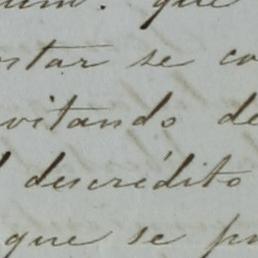 que
ostar se co
vitando de
descrédito
que se pu